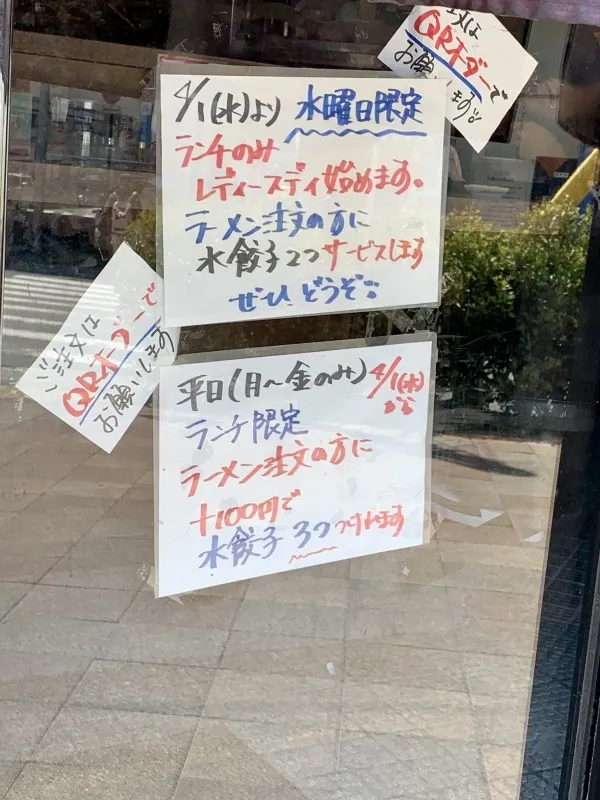 文は
QRオーダーで
お願いします!!
4/1(水)より 水曜日限定
ランチのみ
レディースディ始めます。
ラーメン注文の方に
水餃子2つサービスします
ぜひどうぞ!!
ご注文は
QRオーダーで
お願いします
平日(月〜金のみ) 4/1(水)から
ランチ限定
ラーメン注文の方に
+100円で
水餃子 3つ つけれます